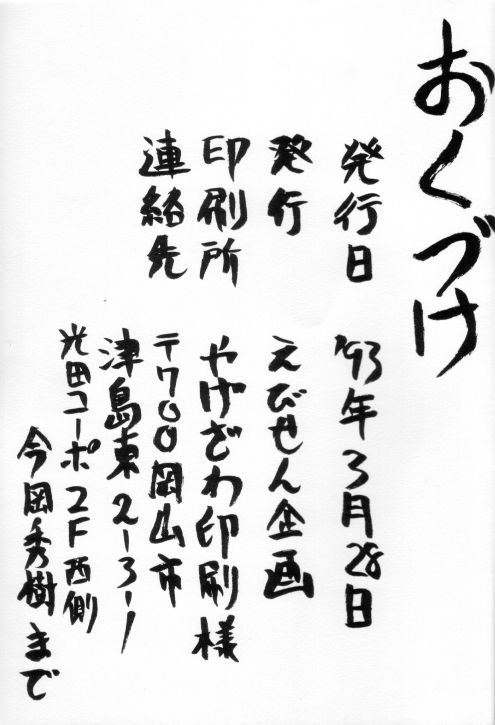 おくづけ
発行日　'93年3月28日
発行　えびせん企画
印刷所　やげざわ印刷様
連絡先　〒700岡山市
津島東2-3-1
光田コーポ2F西側
今岡秀樹まで